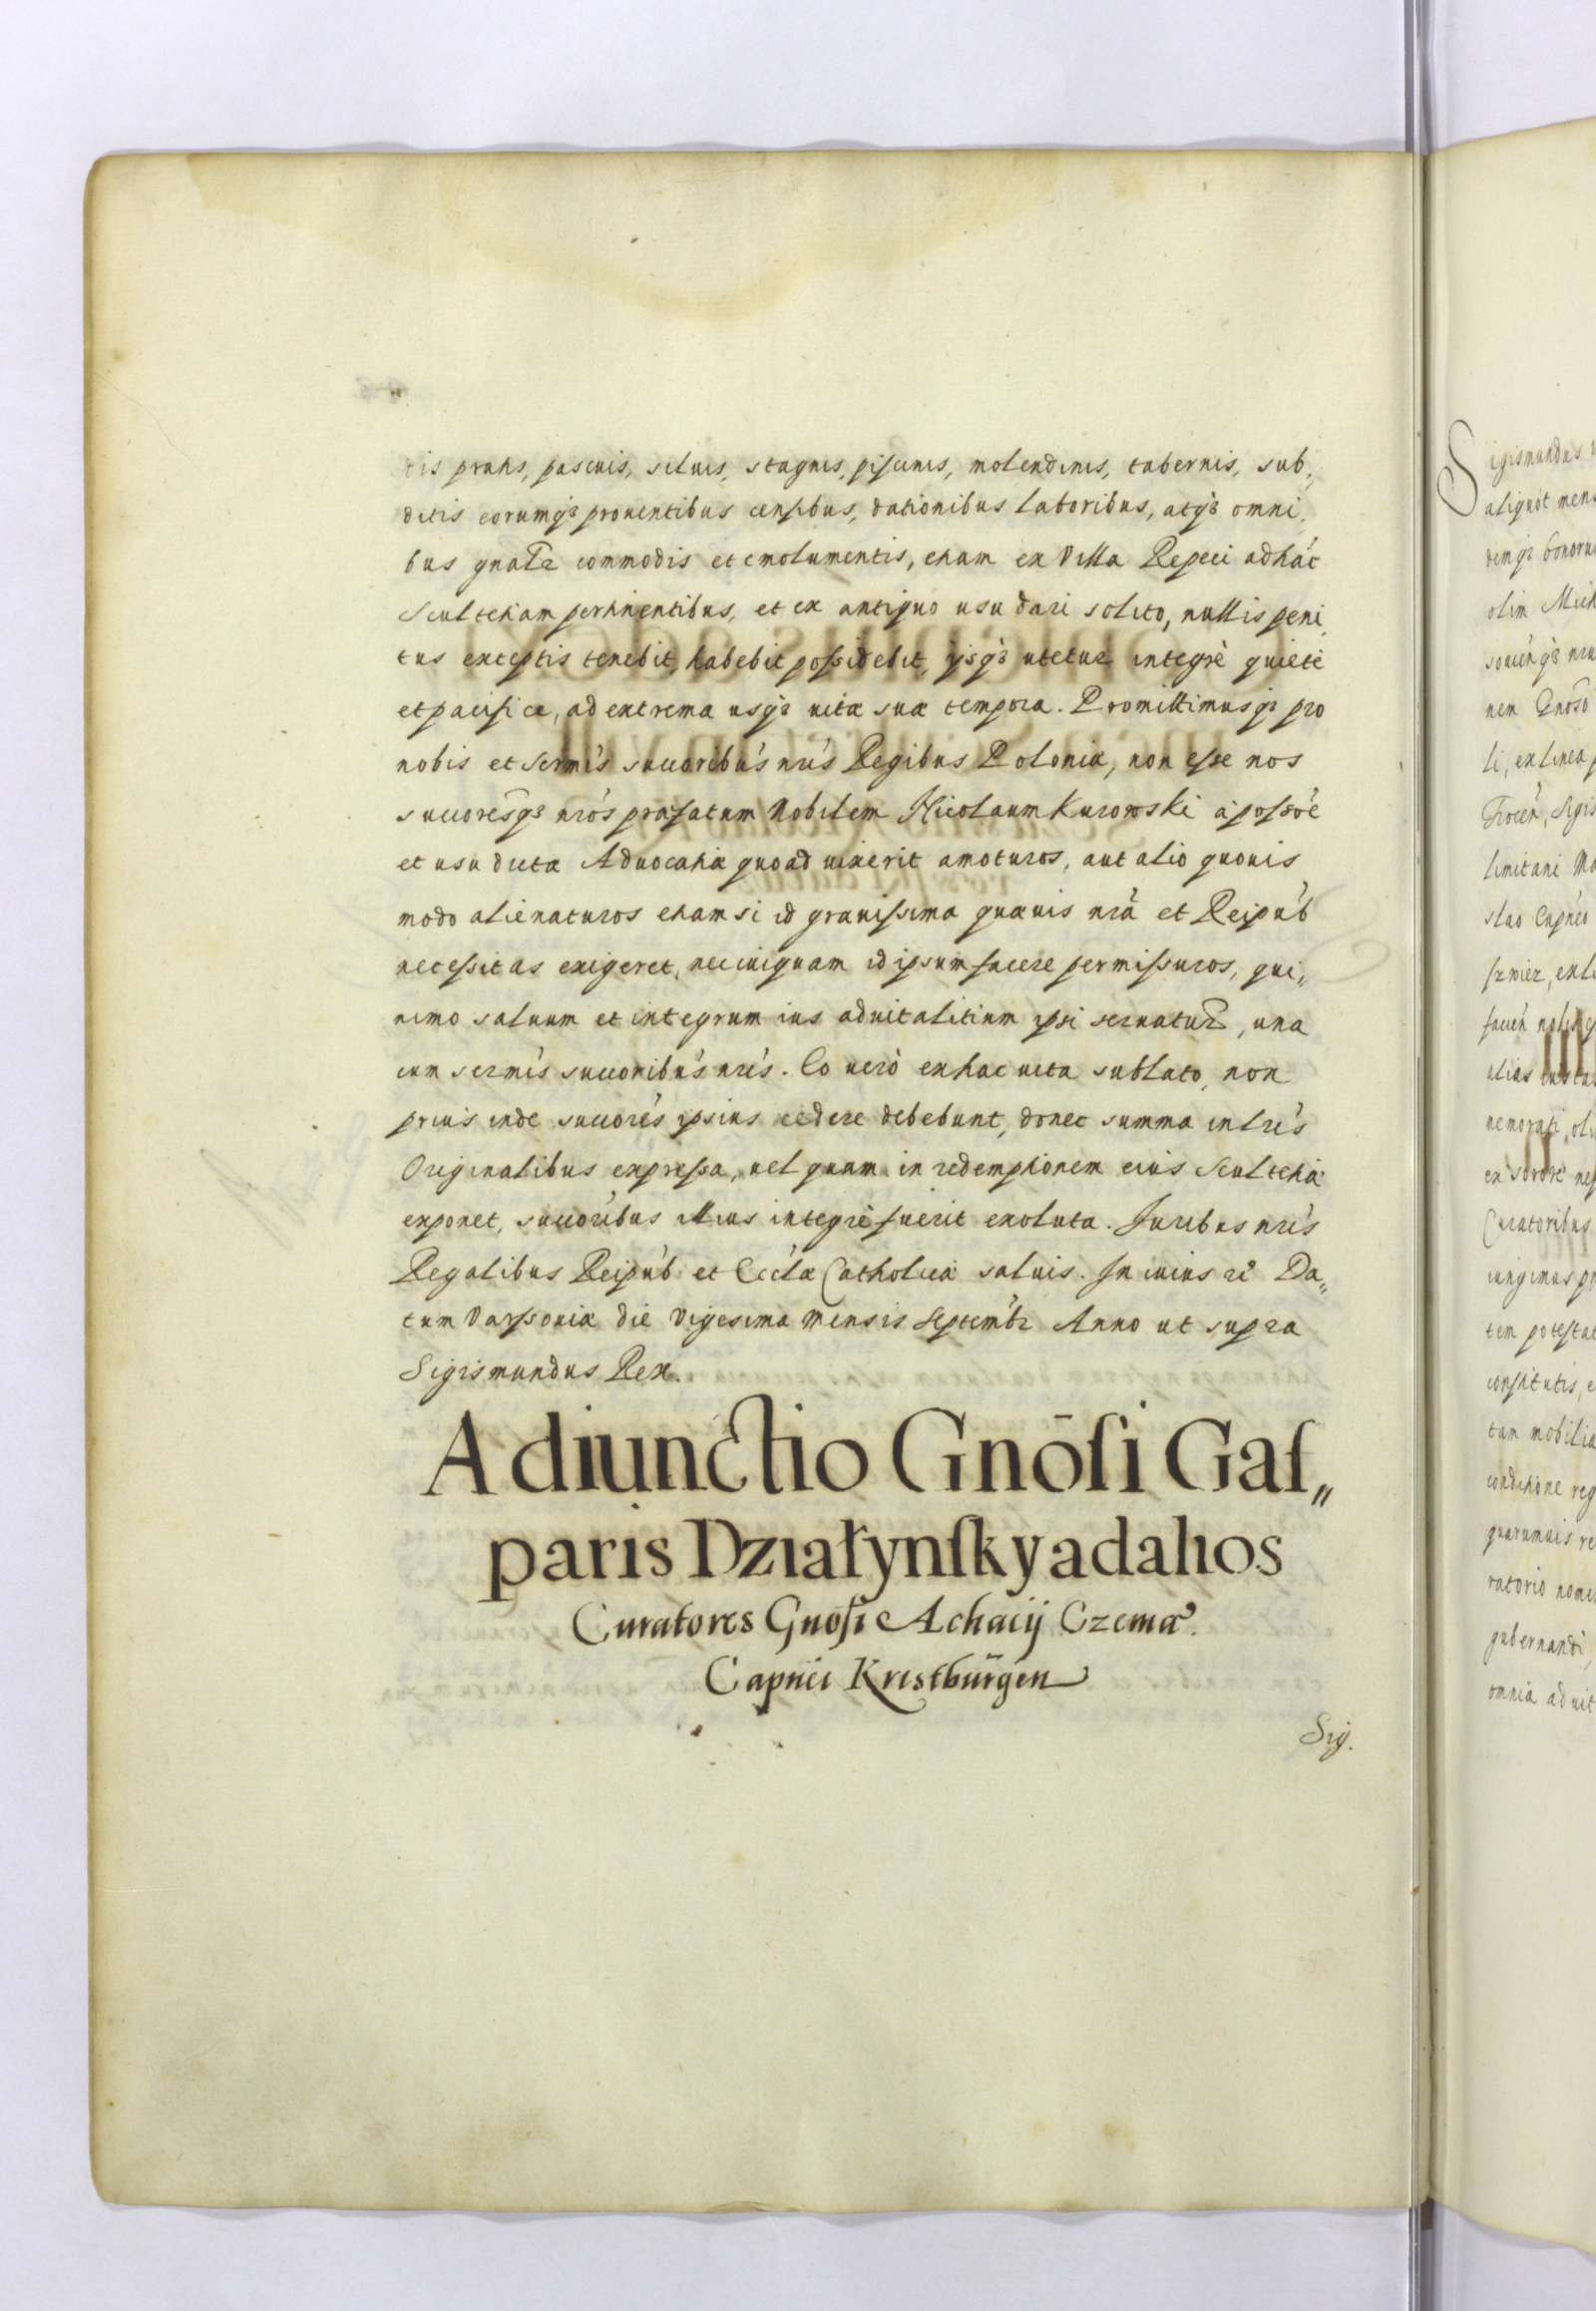 tis pratis, pascuis, siluis, stagnis, piscinis, molendinis, tabernis, sub,
ditis eorumq3 prouentibus censibus, dationibus laboribus, atq3 omni,
bus gnalr commodis et emolumentis, etiam ex Villa Repeci adhác
Scultetiam pertinentibus, et ex antiquo usu dari solito, nullis peni,
tus exceptis tenebit, habebit possidebit, ijsq3 utetur integrè quietè
et pacifice, ad extrema usq3 uitæ suæ tempora. Promittimusq3 pro
nobis et sermis succoribus nris Regibus Poloniæ, non esse nos
succoresq3 nros præfatum Nobilem Nicolaum Kurowski à possoe
et usu dictæ Aduocatiæ quoad uixerit amoturos, aut alio quouis
modo alienaturos etiam si id grauissima quæuis nrà et Reipub
necessitas exigeret, nec cuiquam id ipsum facere permissuros, qui,,
nimo saluum et integrum ius aduitalitium ipsi seruatur, una
cum sermis succoribus nris. Eo uerò ex hac uita sublato, non
prius inde succores ipsius cedere debebunt, donec summa in lris
Originalibus expressa, uel quam in redemptionem eius Scultetiæ
exponet, succoribus illius integrè fuerit exoluta. Juribus nris
Regalibus Reipub et Ecclæ Catholicæ saluis. In cuius rei Da,,
tum Varssouiæ die Vigesima Mensis Septembr Anno ut supra
Sigismundus Rex.
Adiunctio Gnōsi Gas,,
paris Działynsky ad alios
Curatores Gnosi Achacij Czema
Capnei Kristburgen
Sig.
Sigismundus
aliquot mens
demq3 bonoru
olim Mich
nem Gnoso
li, ex linea
limitani
slao Capneo
Curatoribus
iungimus
tem potestat
constitutis,
tam mobilia
conditione reg
quarumuis re
ratorio nomi
gubernandi,
omnia aduit